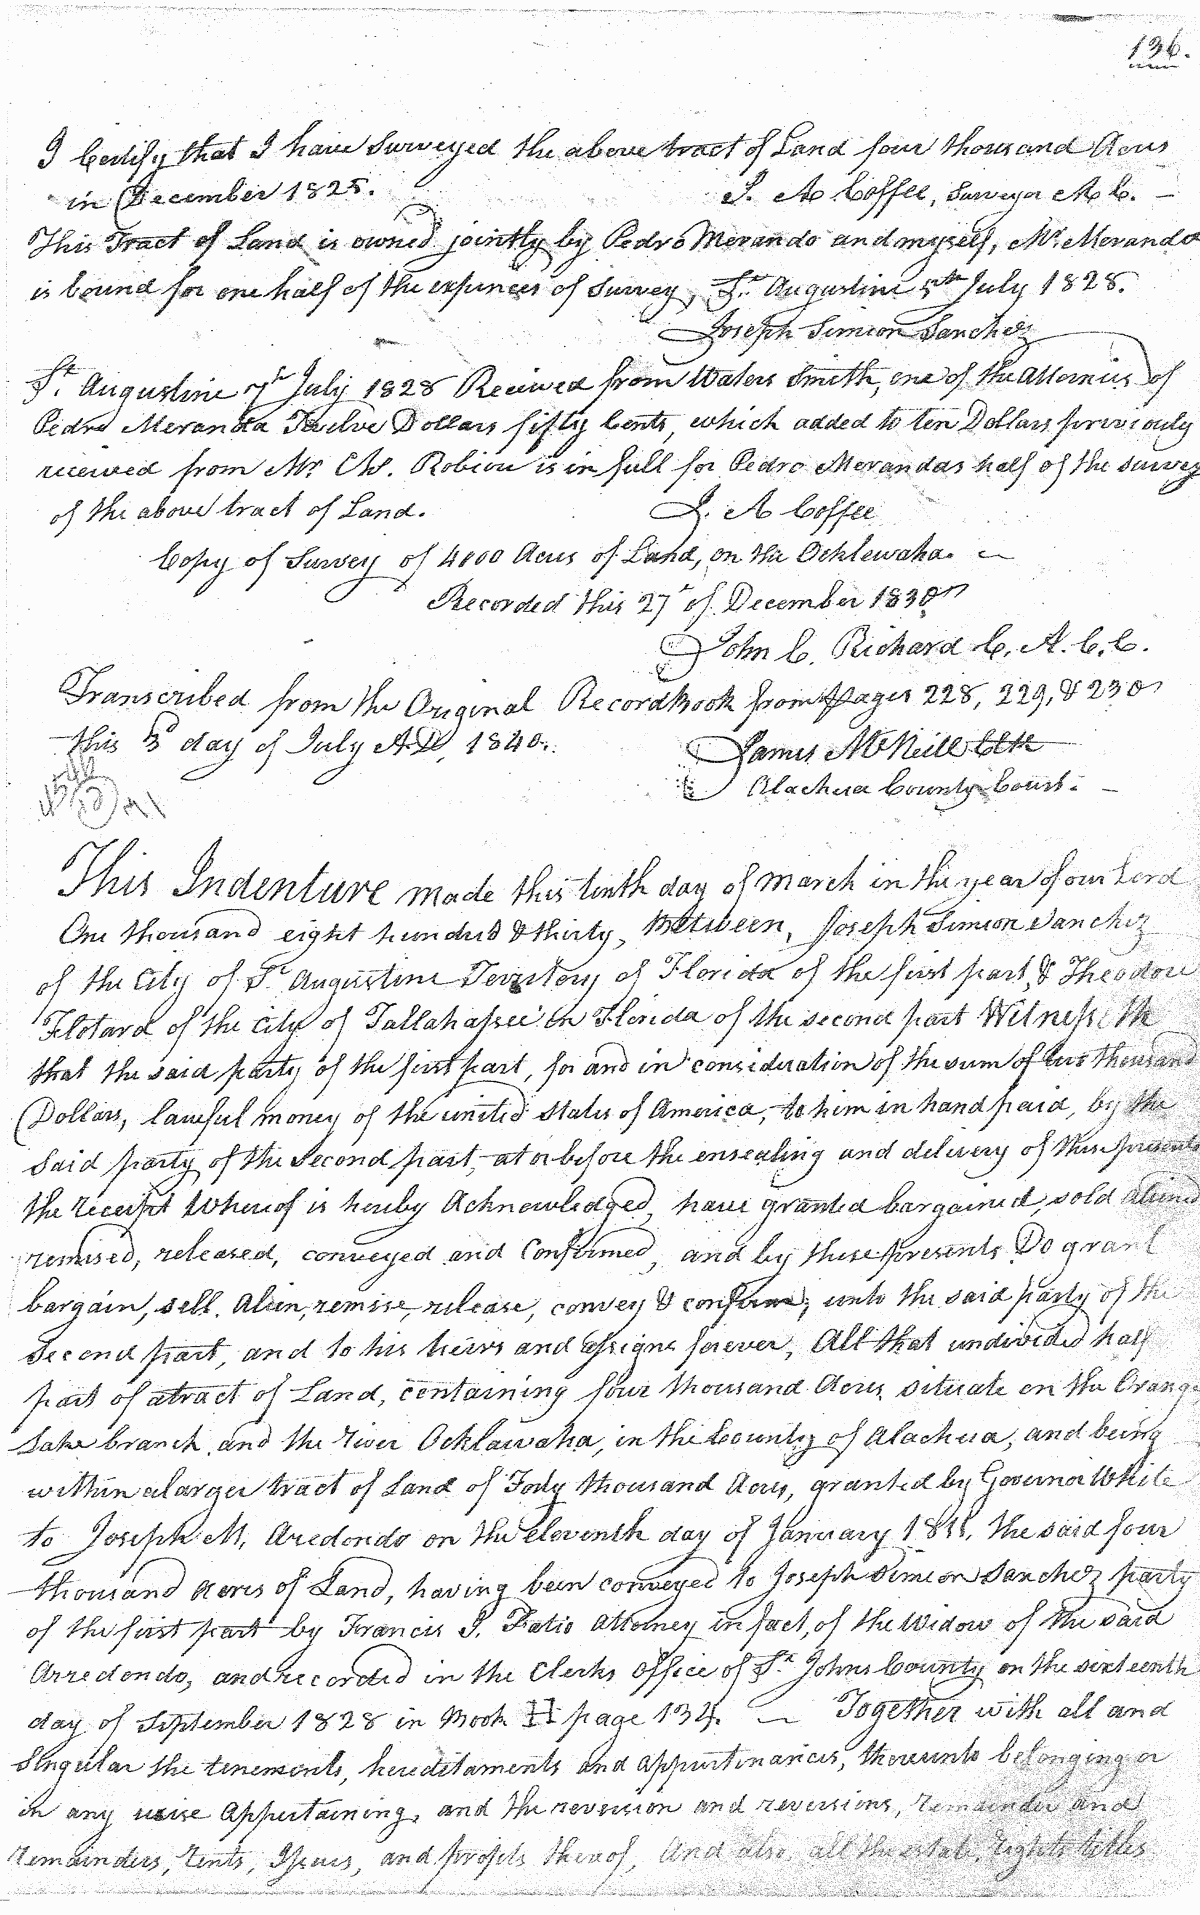 136.
I Certify that I have Surveyed the above tract of Land four thousand Acres
in December 1825. J. A Coffee, Surveyor A C. —
This Tract of Land is owned jointly by Pedro Merando and myself, Mr. Merando
is bound for one half of the expences of Survey, St. Augustine 5th July 1828.
Joseph Simeon Sanchez
St. Augustine 7th July 1828 Received from Waters Smith, one of the Attornies of
Pedro Meranda Twelve Dollars fifty Cents, which added to ten Dollars previously
received from Mr Chs. Robiou is in full for Pedro Merandas half of the survey
of the above tract of Land. J. A Coffee
Copy of Survey of 4000 Acres of Land, on the Ocklewaha. —
Recorded this 27th of December 1830
John C. Richard C. A. C. C.
Transcribed from the Original Record Book from pages 228, 229, & 230
this 3d day of July A.D, 1840.
James McNeill Clk
Alachua County Court. —
This Indenture made this tenth day of March in the year of our Lord
One thousand eight hundred & thirty, Between, Joseph Simeon Sanchez
of the City of St. Augustine Territory of Florida of the first part, & Theodore
Flotard of the City of Tallahassee in Florida of the second part Witnesseth
that the said party of the first part, for and in consideration of the sum of two thousand
Dollars, lawful money of the united States of America, to him in hand paid, by the
said party of the second part, at or before the ensealing and delivery of these presents
the receipt Whereof is hereby Acknowledged, have granted bargained, sold aliened
remised, released, conveyed and Confirmed, and by these presents Do grant
bargain, sell, Alien, remise, release, convey & confirm, unto the said party of the
second part, and to his heirs and assigns forever, All that undivided half
part of a tract of Land, containing four thousand Acres situate on the Orange
Lake branch, and the River Ocklawaha, in the County of Alachua, and being
within a larger tract of Land of Forty thousand Acres, granted by Governor White
to Joseph M, Aredondo on the eleventh day of January 1811, the said four
thousand Acres of Land, having been conveyed to Joseph Simeon Sanchez party
of the first part by Francis J. Fatio Attorney in fact, of the Widow of the said
Arredondo, and recorded in the Clerks Office of St. Johns County on the sixteenth
day of September 1828 in Book H page 134. — Together with all and
Singular the tenements, hereditaments and appurtinances, thereunto belonging or
in any wise Appertaining, and the reversion and reversions, remainder and
remainders, rents, Issues, and profits thereof, And also, all the estate, rights titles